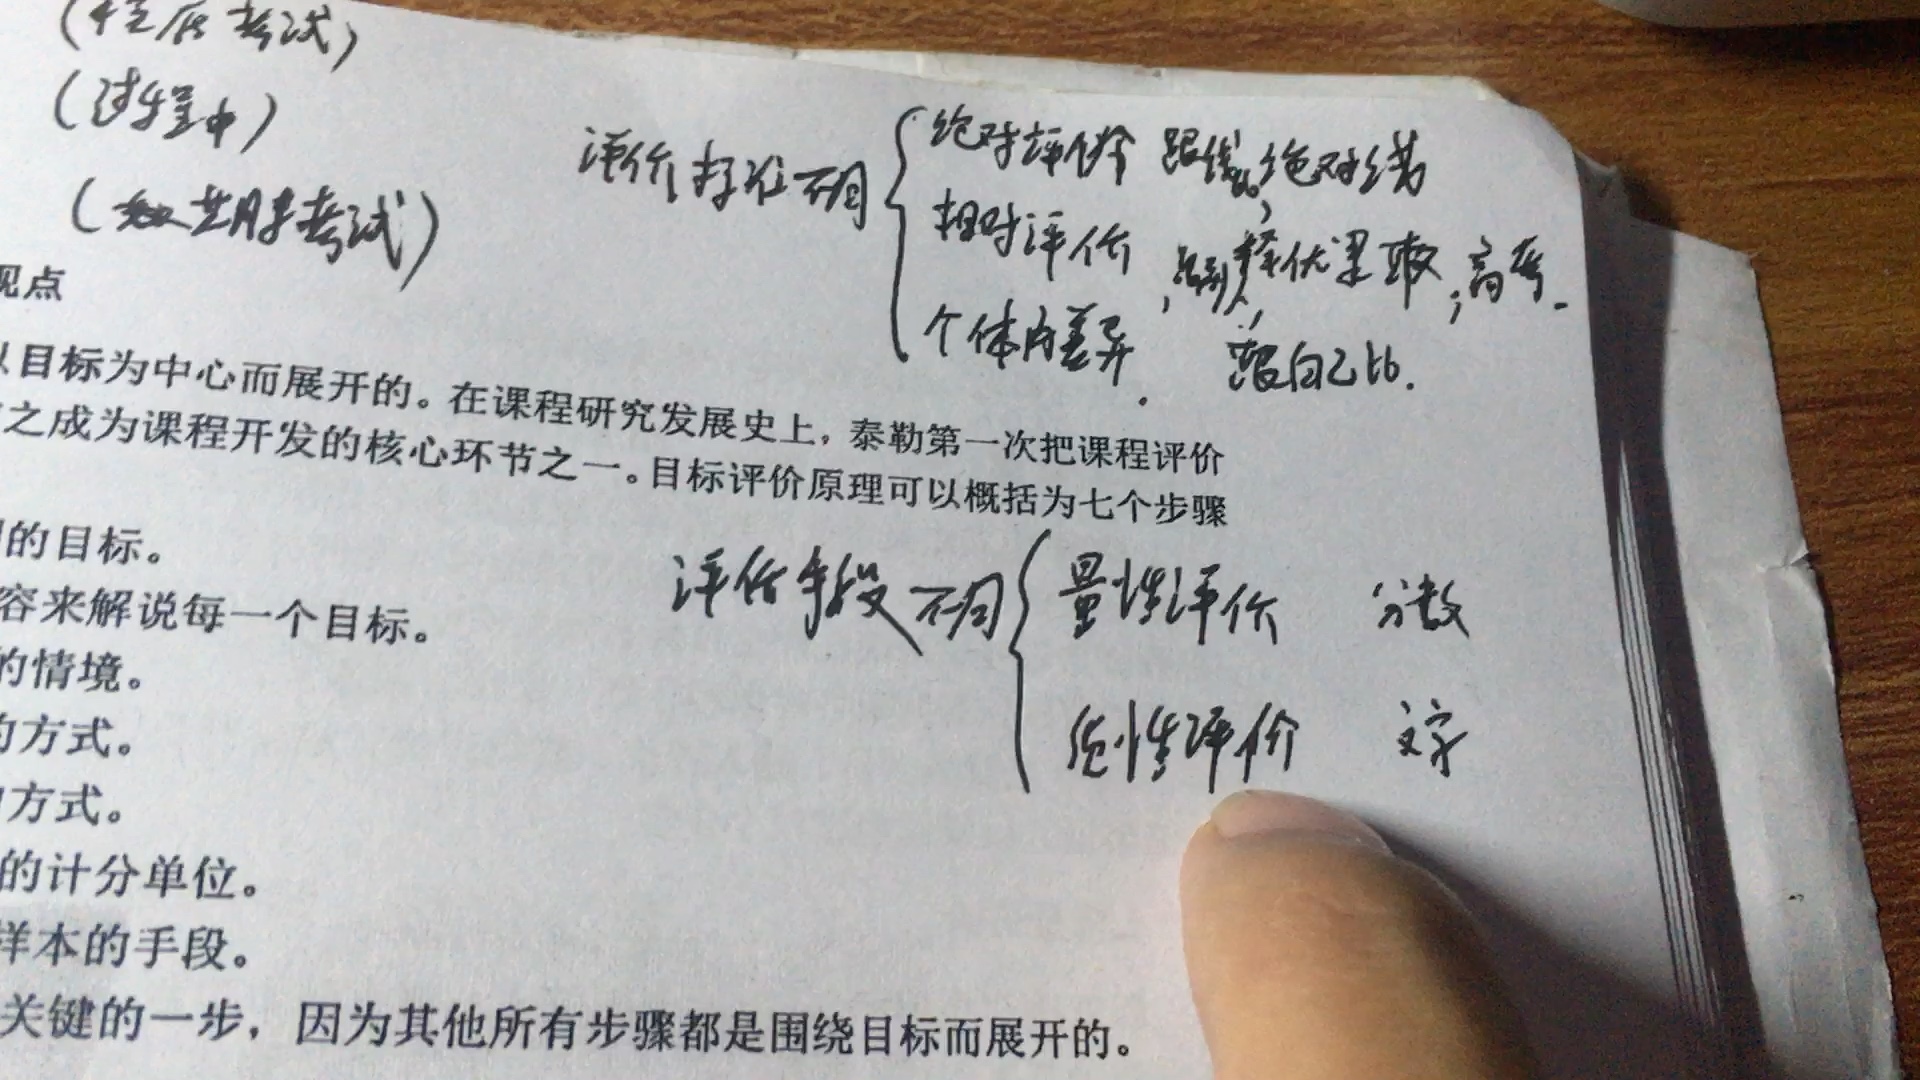 (摸底考试)
(过程中)
(期末考试)
评价标准不同
绝对评价 跟线比,绝对线
相对评价,择优录取,高考.
个体内差异. 跟自己比.
观点
以目标为中心而展开的。在课程研究发展史上,泰勒第一次把课程评价
之成为课程开发的核心环节之一。目标评价原理可以概括为七个步骤
的目标。
容来解说每一个目标。
的情境。
的方式。
方式。
的计分单位。
样本的手段。
关键的一步,因为其他所有步骤都是围绕目标而展开的。
评估手段不同
量性评价 分数
性评价 文字